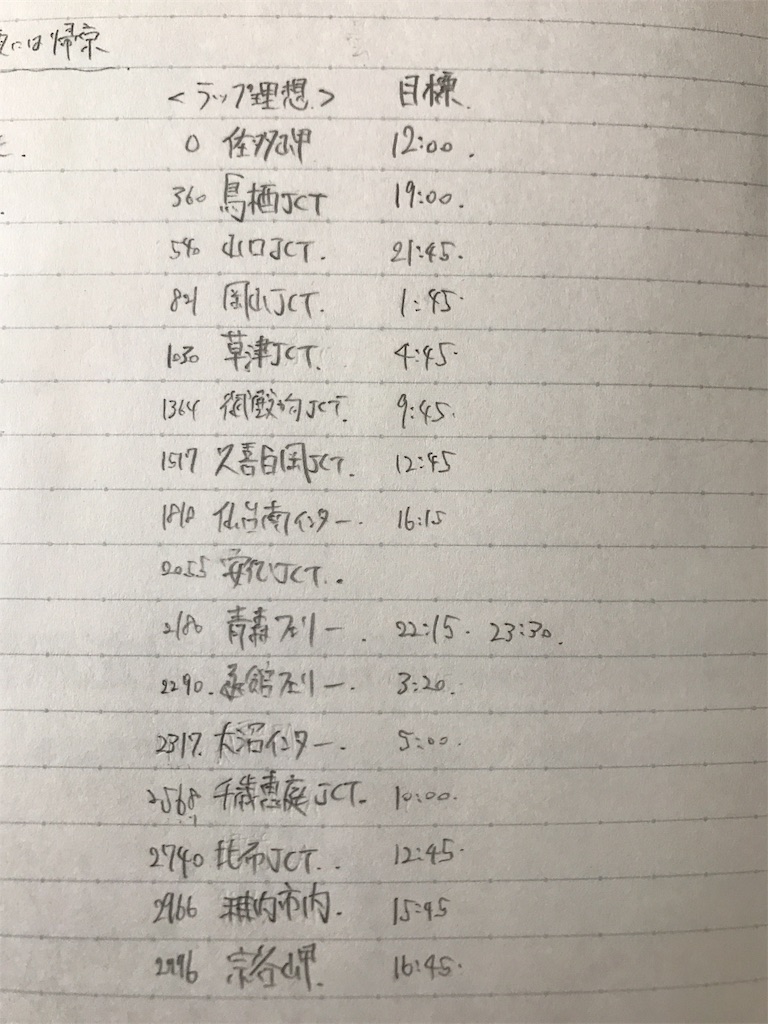 には帰京
<ラップ理想> 目標
0 佐多岬 12:00.
360 鳥栖JCT 19:00.
540 山口JCT. 21:45.
821 岡山JCT. 1:45.
1030 草津JCT. 4:45.
1364 御殿場JCT. 9:45.
1517 久喜白岡JCT. 12:45
1818 仙台南インター. 16:15
2055 安代JCT..
2180 青森フェリー. 22:15. 23:30.
2290. 函館フェリー. 3:20.
2317. 大沼インター. 5:00.
2568 千歳恵庭JCT. 10:00.
2740 比布JCT.. 12:45.
2966 稚内市内. 15:45
2996 宗谷岬. 16:45.